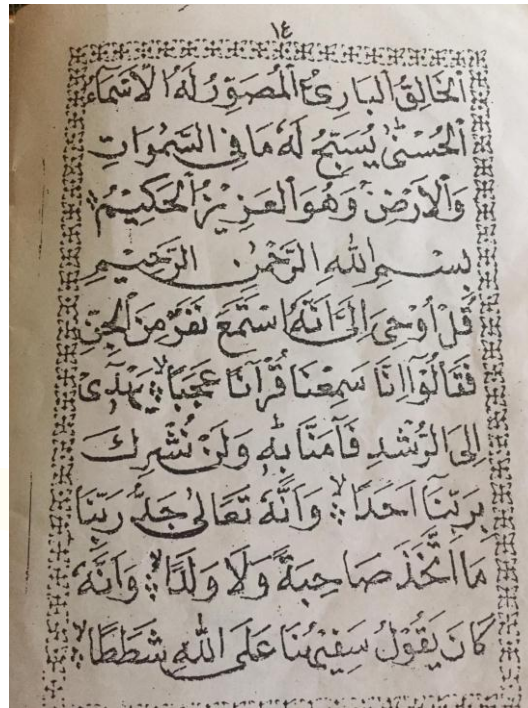 ١٤
الْخَالِقُ الْبَارِئُ الْمُصَوِّرُ لَهُ الْاَسْمَاءُ
الْحُسْنٰى يُسَبِّحُ لَهُ مَا فِي السَّمٰوَاتِ
وَالْاَرْضِ وَهُوَ الْعَزِيْزُ الْحَكِيْمُ
بِسْمِ اللهِ الرَّحْمٰنِ الرَّحِيْمِ
قُلْ اُوْحِيَ اِلَيَّ اَنَّهُ اسْتَمَعَ نَفَرٌ مِنَ الْجِنِّ
فَقَالُوْا اِنَّا سَمِعْنَا قُرْآنًا عَجَبًا يَهْدِيْ
اِلَى الرُّشْدِ فَآمَنَّا بِهٖ وَلَنْ نُشْرِكَ
بِرَبِّنَا اَحَدًا وَاَنَّهُ تَعَالٰى جَدُّ رَبِّنَا
مَا اتَّخَذَ صَاحِبَةً وَلَا وَلَدًا وَاَنَّهُ
كَانَ يَقُوْلُ سَفِيْهُنَا عَلَى اللهِ شَطَطًا